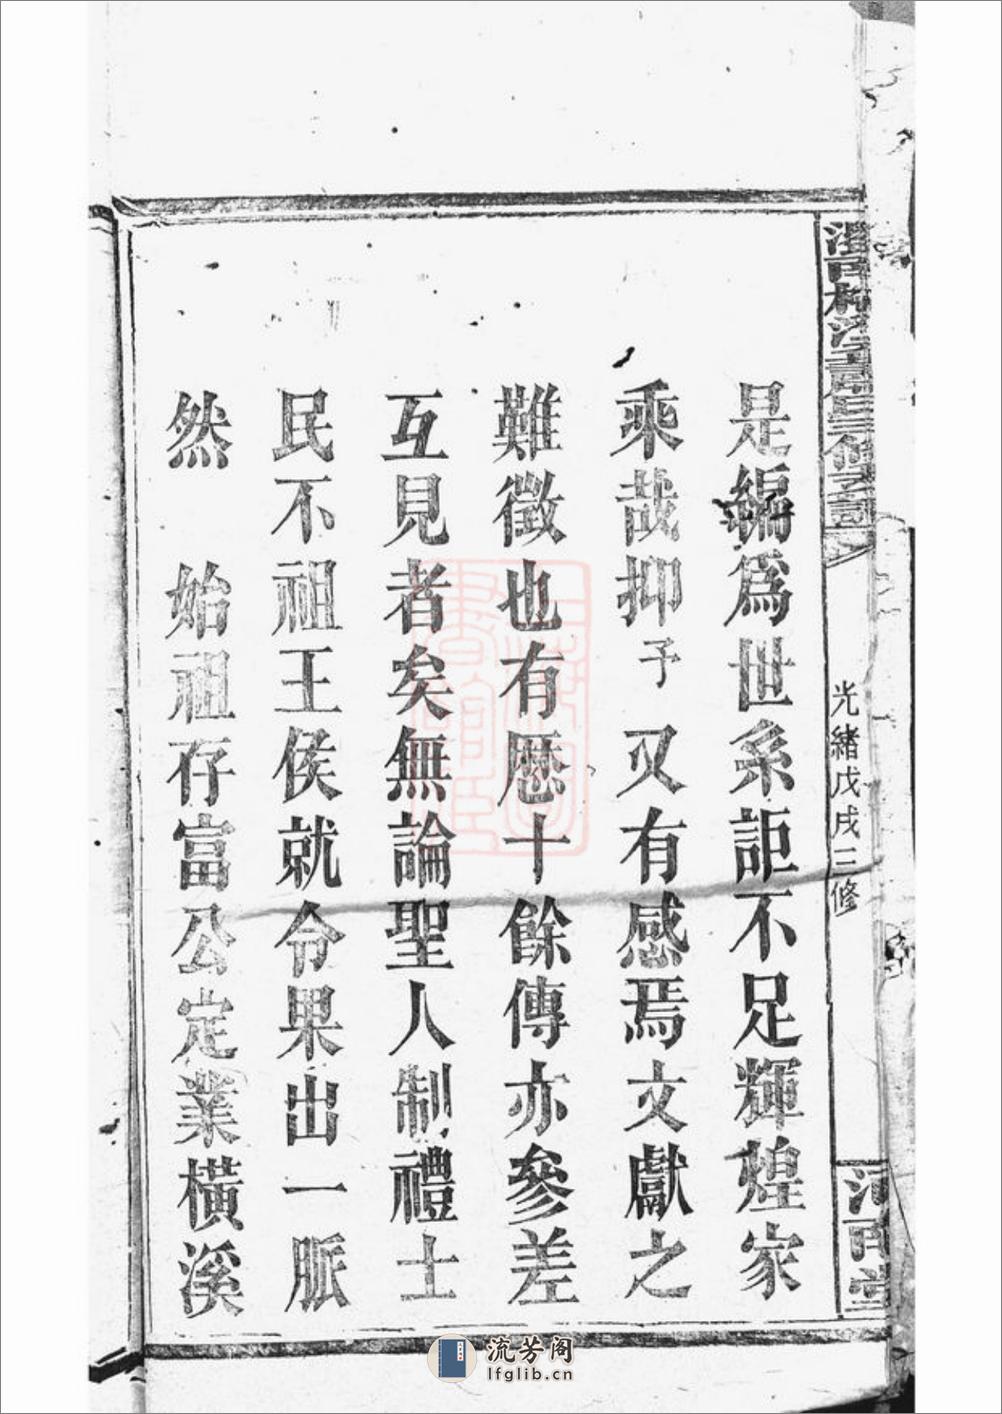 是編爲世系詎不足輝煌家
乘哉抑予又有感焉文獻之
難徵也有歷十餘傳亦參差
互見者矣無論聖人制禮士
民不祖王侯就令果出一脈
然　始祖存富公定業橫溪
光緒戊戌三修
堂
流芳阁
lfglib.cn